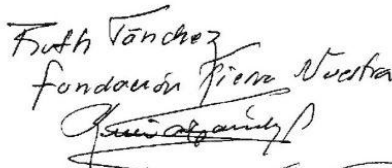 Ruth Sánchez
Fundación Tierra Nuestra